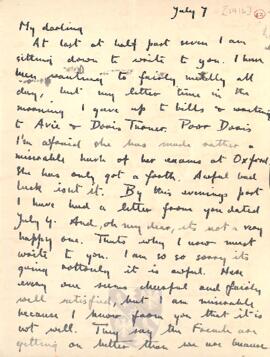 July 7 [1916]
My darling
At last at half past seven I am
sitting down to write to you. I have
been wanting to fairly madly all
day, but my letter time in the
morning I gave up to bills & writing
to Avie & Doris Turner. Poor Doris
I'm afraid she has made rather a
miserable hash of her exams at Oxford.
She has only got a fourth. Awful bad
luck isn't it. By this evenings post
I have had a letter from you dated
July 4. And, oh my dear, its not a very
happy one. Thats why I now must
write to you. I am so so sorry its
going rottenly it is awful. Here
every one seems cheerful and fairly
well satisfied, but I am miserable
because I know from you that it is
not well. They say the French are
getting on better than we are because